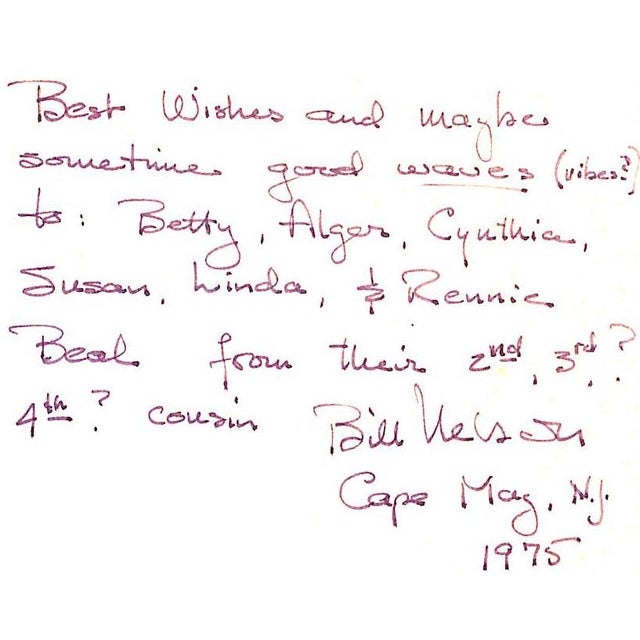 Best Wishes and maybe
sometime good waves (vibes?)
to: Betty, Alger, Cynthia,
Susan, Linda, & Rennie
Beal from their 2nd, 3rd?
4th? cousin Bill Nelson
Cape May, N.J.
1975